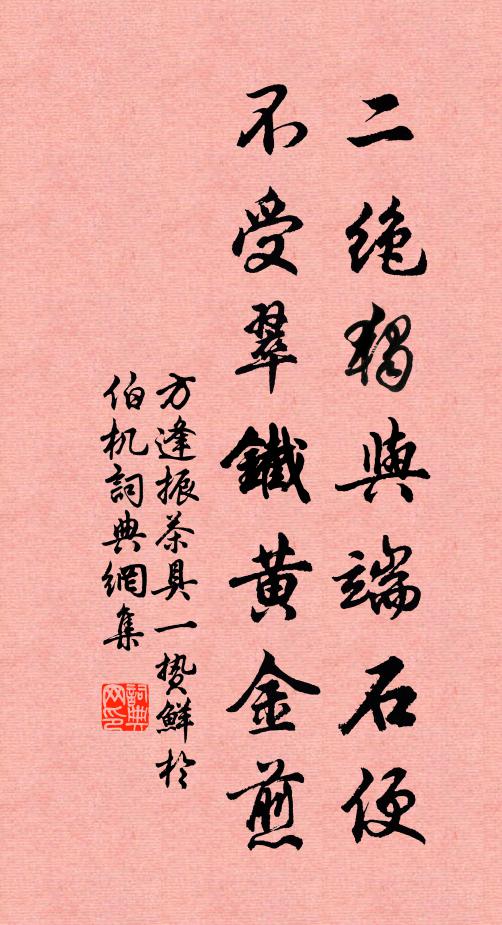 二絶獨與端石便
不受翠鐵黄金煎
方逢振茶具一贽鮮於
伯机詞典網集
詞典
网印